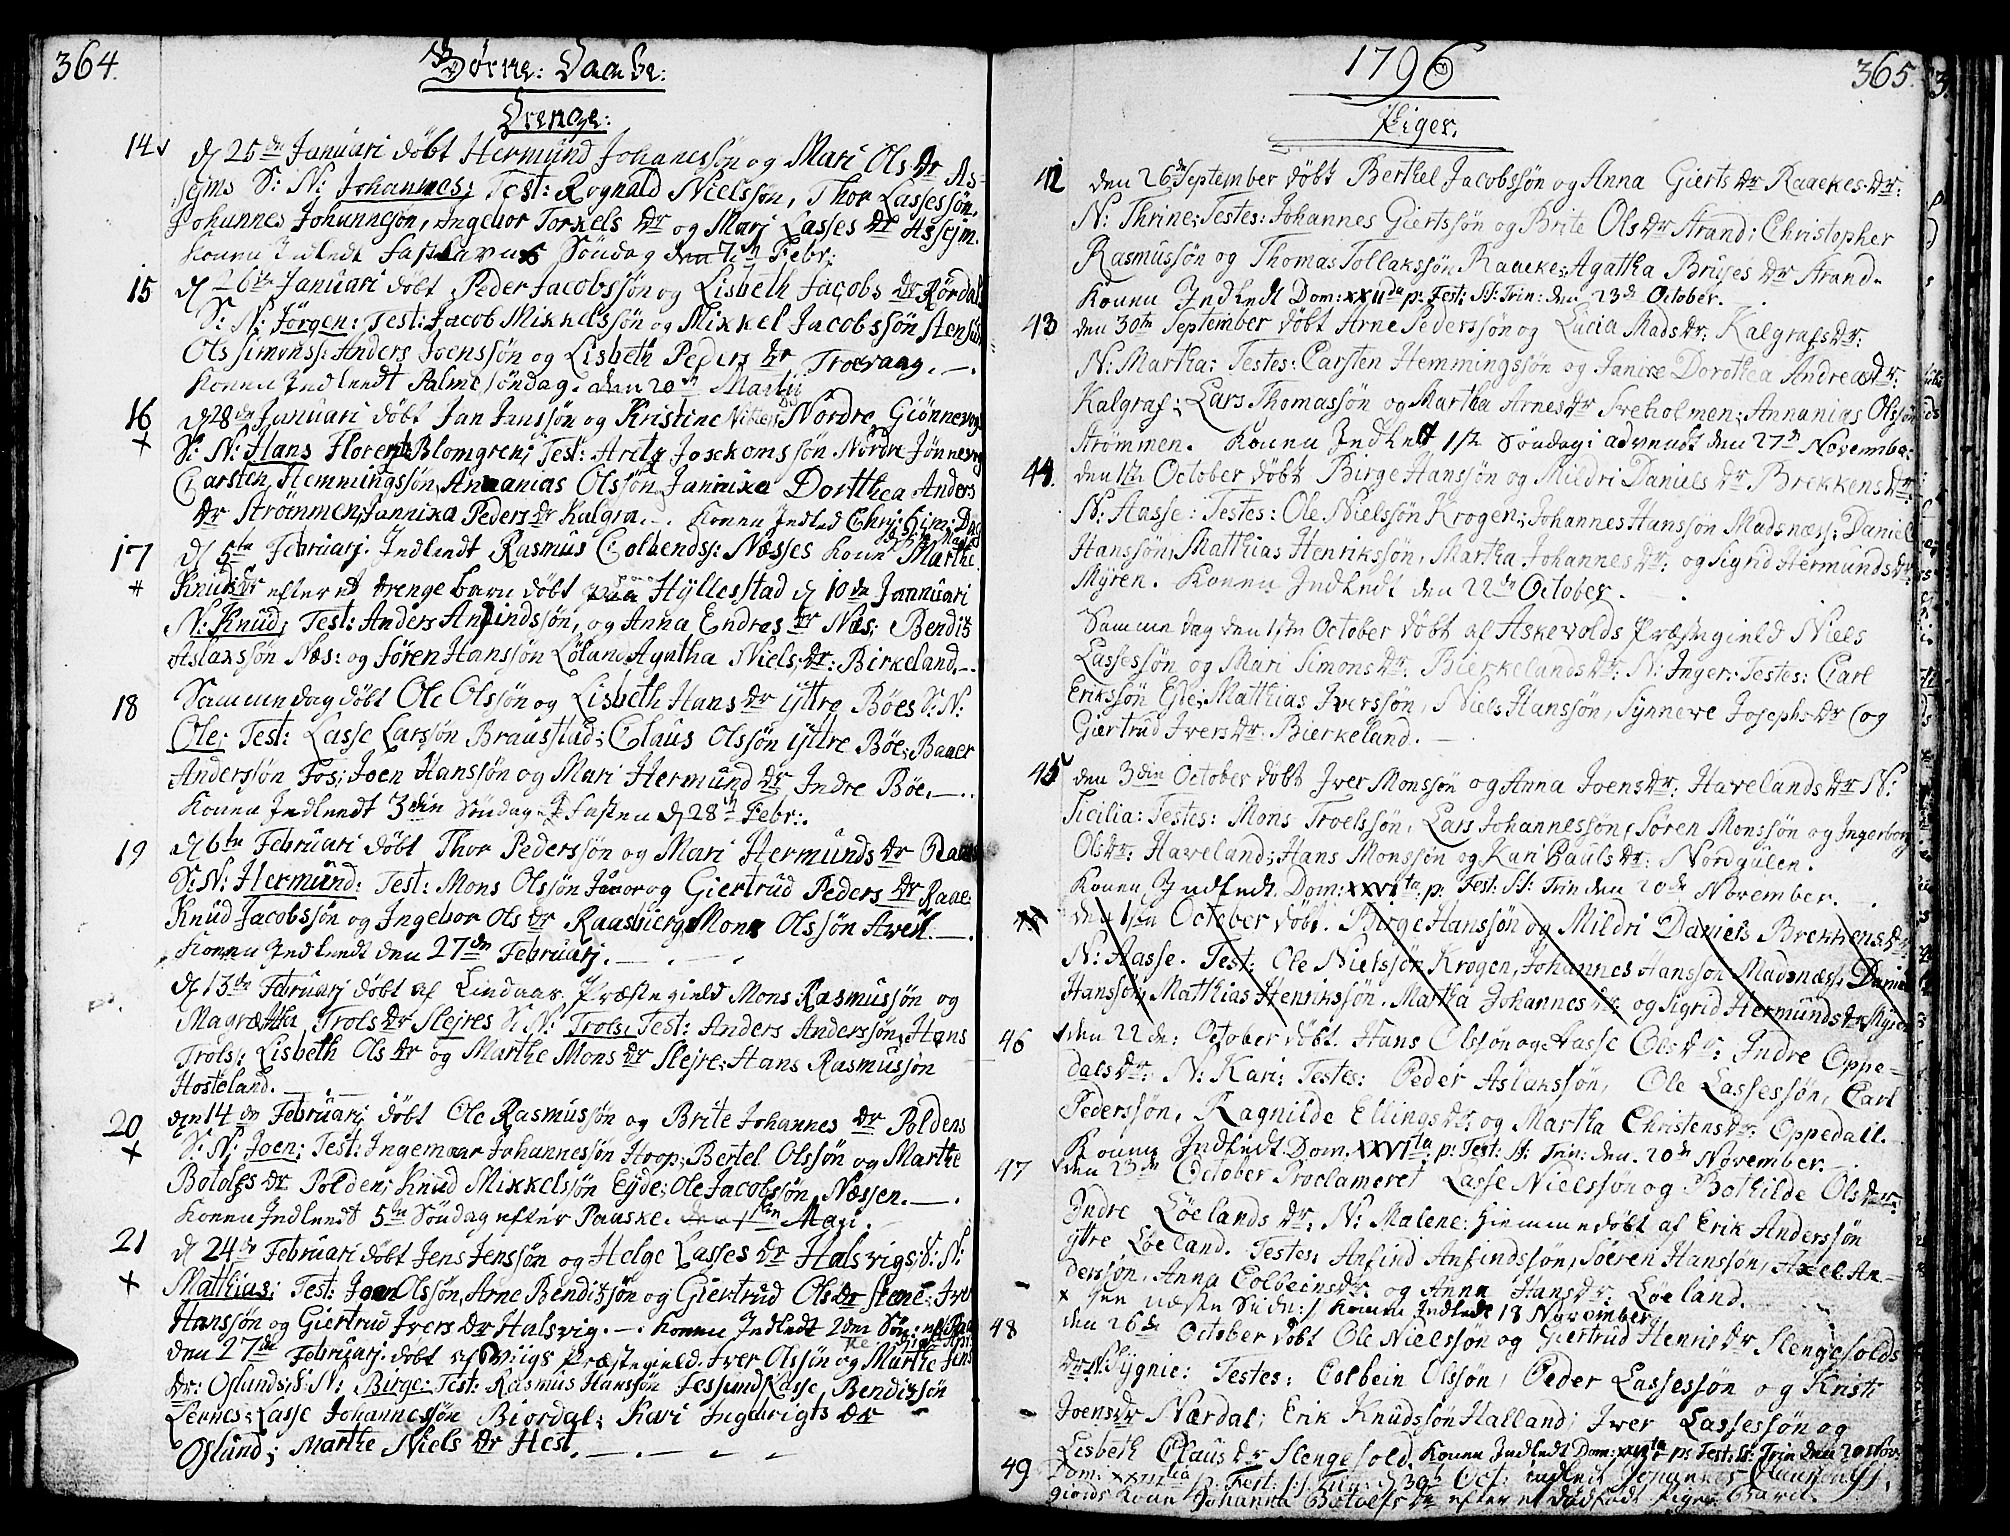 364.
Børne: Daabe:
Drenge:
14 d 25de Januari døbt Hermund Johanessøn og Mari Ols dr As-
sejms S: N: Johannes; Test: Rognald Nielssøn, Thor Lassessøn,
Johannes Johannesøn, Ingebor Torkels dr og Mari Lasses dr Assejm.
Konen Indledt Fastelavns Søndag den 7de Febr:
15 d 26de Januari døbt Peder Jacobssøn og Lisbeth Jacobs dr Rørdals
S: N: Jørgen: Test: Jacob Mikkelssøn og Mikkel Jacobssøn
Ols Simonss: Anders Joenssøn og Lisbeth Peders dr Troevaag.
Konen Indledt Palmesøndag. den 20de Martii
16 d 28de Januari døbt Jan Janssøn og Kristine Nordre Giønnevog
S: N: Hans Florentz Blomgren; Test: Josekomssøn Nordre Jønnevog
Carsten Hemmingssøn, Ananias Olssøn, Jannixa Dorthea Anders
dr Strømmen, Jannixa Peders dr Kalgra. Konen Indled
17 d 5te Februarj. Indledt Rasmus Colbends: Næsses Kone Marthe
Knuds dr efter et drenge barn døbt paa Hyllestad d 10de Jannuari
N: Knud; Test: Anders Anfindssøn, og Anna Endres dr Næs; Bendix
Aslaxsøn Næs: og Søren Hanssøn Løland, Agatha Niels; dr: Birkeland.
18 Samme dag døbt Ole Olssøn og Lisbeth Hans dr Yttre Bøes S: N:
Ole; Test: Lasse Larssøn Braustad; Claus Olssøn Yttre Bøe; Baaer
Anderssøn Fos; Joen Hanssøn og Mari Hermund dr Indre Bøe.
Konen Indledt 3die Søndag i Fasten d 28de Febr:
19 d 6te Februari døbt Thor Pederssøn og Mari Hermunds dr
S: N: Hermund: Test: Mons Olssøn og Giertrud Peders dr Raae
Knud Jacobssøn og Ingebor Ols dr Raasbierg, Mons Olssøn
Konen Indledt den 27de Februarj.
d 13de Februarj døbt af Lindaas Præstegield Mons Rasmussøn og
Magrætha Trols dr Slejres S: N: Trols; Test: Anders Anderssøn, Hans
Trols: Lisbeth Ols dr og Marthe Mons dr Slejre, Hans Rasmussøn
Hosteland.
20 den 14de Februarj døbt Ole Rasmussøn og Brite Johannes dr Poldens
S: N: Joen; Test: Ingemaar Johannessøn Hoop, Bertel Olssøn og Marthe
Botolfs dr Polden; Knud Mikkelssøn Eyde; Ole Jacobssøn Næssen.
Konen Indledt 5te Søndag efter Paaske. den 1ste Maji.
21 d 24de Februari døbt Jens Jenssøn og Helge Lasses dr Halsvigs; S: N:
Mathias; Test: Joen Olssøn, Arne Bendixsøn og Giertrud Ols dr Stene; Iver
Hanssøn og Giertrud Ivers dr Halsvig. Konen Indledt 2den Søn:
den 27de Februarj. døbt af Viigs Præstegield Iver Olssøn og Marthe Jens
dr: Oslunds; S: N: Birge: Test: Rasmus Hanssøn Tessund, Lasse Bendixsøn
Lernes, Lasse Johannessøn Biordal; Kari Ingebrigts dr
Oslund; Marthe Niels dr Hest.
1796
365.
Piger.
42 den 26de September døbt Berthel Jacobssøn og Anna Gierts dr Raaekes dr:
N: Thrine; Testes: Johannes Giertssøn og Brite Ols dr Strand; Christopher
Rasmussøn og Thomas Tollakssøn Raaeke; Agatha Bruses dr Strand.
Konen Indledt Dom: XXIIda p: Fest: St: Trin: den 23de October.
43 den 30te September døbt Arne Pederssøn og Lucia Mads dr: Kalgrafs dr:
N: Martha: Testes: Carsten Hemmingssøn og Janixe Dorothea Andreas dr:
Kalgraf; Lars Thomassøn og Martha Arnes dr Sveholmen; Annanias Olssøn
Strømmen. Konen Indledt 1ste Søndag i advendt den 27de November.
44. den 1ste October døbt Birge Hanssøn og Mildri Daniels dr Brekkens dr:
N: Aasse: Testes: Ole Nielssøn Krogen; Johannes Hanssøn Madsnæss: Daniel
Hanssøn; Matthias Henrikssøn, Martha Johannes dr: og Sigrid Hermunds dr:
Myren. Konen Indledt den 22de October.
Samme dag den 1ste October døbt af Askevolds Præstegield Niels
Lassessøn og Mari Simons dr. Bierkelands dr: N: Inger: Testes: Carl
Erikssøn Eye; Matthias Iverssøn, Niels Hanssøn, Synneve Josephs dr og
Giertrud Ivers dr: Bierkeland.
45 den 3die October døbt Iver Monssøn og Anna Joens dr: Havelands dr N:
Sicilia: Testes: Mons Troelssøn, Lars Johannessøn, Søren Monssøn og Ingerborg
Ols dr: Haveland; Hans Monssøn og Kari Pauls dr: Nordgulen.
Konen Indledt Dom: XXVIta p: Fest: St: Trin den 20de November.
den 1ste October døbt. Birge Hanssøn og Mildri Daniels Brekkens dr
N: Aasse. Test: Ole Nielssøn Krogen, Johannes Hanssøn Madsnæss; Daniel
Hanssøn, Matthias Henrikssøn. Martha Johannes dr og Sigrid Hermunds dr Myren
46 den 22de: October døbt. Hans Olssøn og Aasse Ols dr: Indre Oppe-
dals dr: N: Kari; Testes: Peder Aslakssøn, Ole Lassessøn, Carl
Pederssøn, Ragnilde Ellings dr: og Martha Christens dr: Oppedall.
Konen Indledt Dom. XXVIta p: Fest: St: Trin: den. 20de November.
47 den 23de October Proclameret Lasse Nielssøn og Bothilde Ols dr:
Indre Løelands dr: N: Malene: hiemmedøbt af Erik Anderssøn
ytre Løeland. Testes: Anfind Anfindssøn, Søeren Hanssøn, Axel An-
derssøn, Anna Colbeins dr. og Anna Hans dr. Løeland.
x see næste Side: / Konen Indledt 18 November
48 den 26de October døbt Ole Nielssøn og Giertrud Henric dr Slengesolds
dr: N: Sygnie: Testes: Colbein Olssøn, Peder Lassessøn og Kristi
Joens dr Nærdal; Erik Knudssøn Halland; Iver Lassessøn og
Lisbeth Claus dr Slengesold. Konen Indledt Dom: XXVIta p: Fest: St: Trin den 20 Nov:
49 Dom: XXIIItia p: Fest: St: Trin: d 30te Oct: indledt Johannes
giords Kone Johanna Botolfs dr efter et dødfødt Pige Barn.